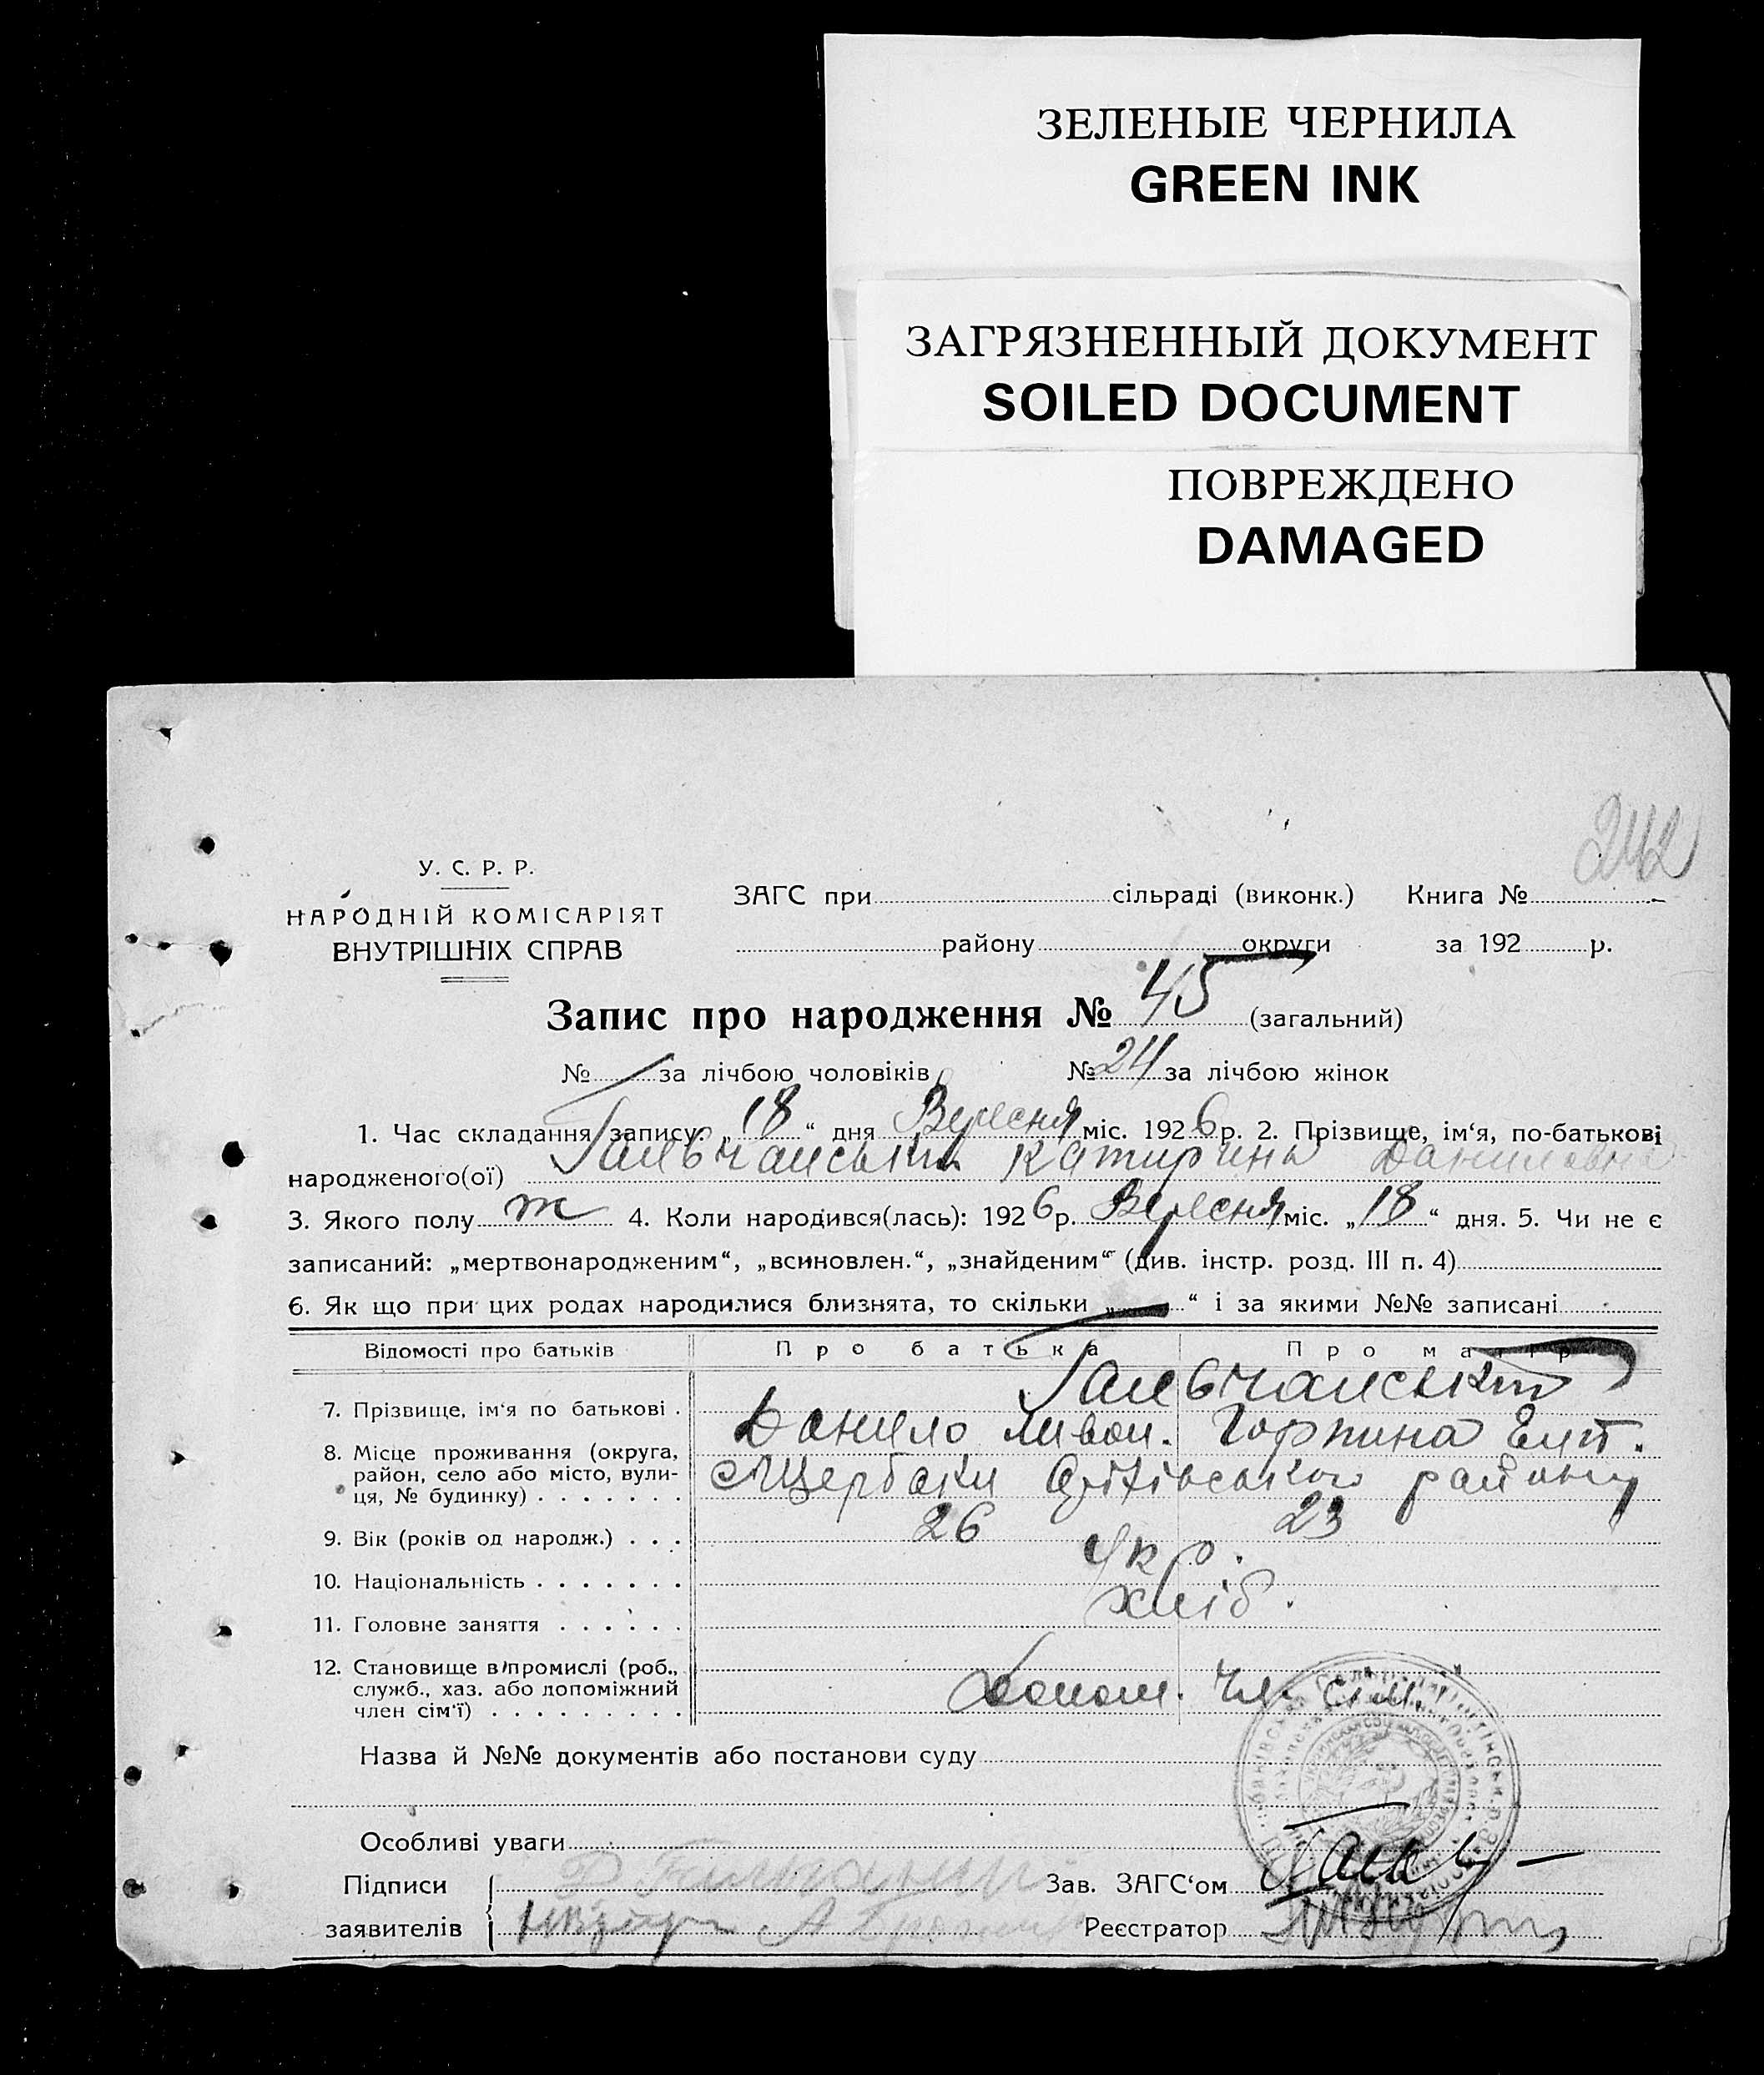 ЗЕЛЕНЫЕ ЧЕРНИЛА
GREEN INK
ЗАГРЯЗНЕННЫЙ ДОКУМЕНТ
SOILED DOCUMENT
ПОВРЕЖДЕНО
DAMAGED
242
У. С. Р. Р.
НАРОДНІЙ КОМІСАРІЯТ
ВНУТРІШНІХ СПРАВ
ЗАГС при сільраді (виконк.) Книга №
району округи за 192 р.
Запис про народження № 45 (загальний)
№ за лічбою чоловіків № 24 за лічбою жінок
1. Час складання запису: „18“ дня Вересня міс. 1926 р. 2. Прізвище, ім‘я, по-батькові
народженого(ої) Гальчанська Катирина Даниловна
3. Якого полу ж 4. Коли народився(лась): 1926 р. Вересня міс. „18“ дня. 5. Чи не є
записаний: „мертвонародженим“, „всиновлен.“, „знайденим“ (див. інстр. розд. III п. 4)
6. Як що при цих родах народилися близнята, то скільки „ “ і за якими №№ записані
Відомості про батьків Про батька Про матір
Гальчанські
7. Прізвище, ім‘я по батькові . Данило Горпина
8. Місце проживання (округа,
район, село або місто, вули-
ця, № будинку) . . . . . . . Щербаки Оріхівського району
9. Вік (років од народж.) . . . 26 23
10. Національність . . . . . . . Укр.
11. Головне заняття . . . . . . хліб.
12. Становище в промислі (роб.,
служб., хаз. або допоміжний
член сім‘ї) . . . . . . . . . Допом. чл. сім.
Назва й №№ документів або постанови суду
Особливі уваги
Підписи
заявителів
Зав. ЗАГС‘ом
Реєстратор